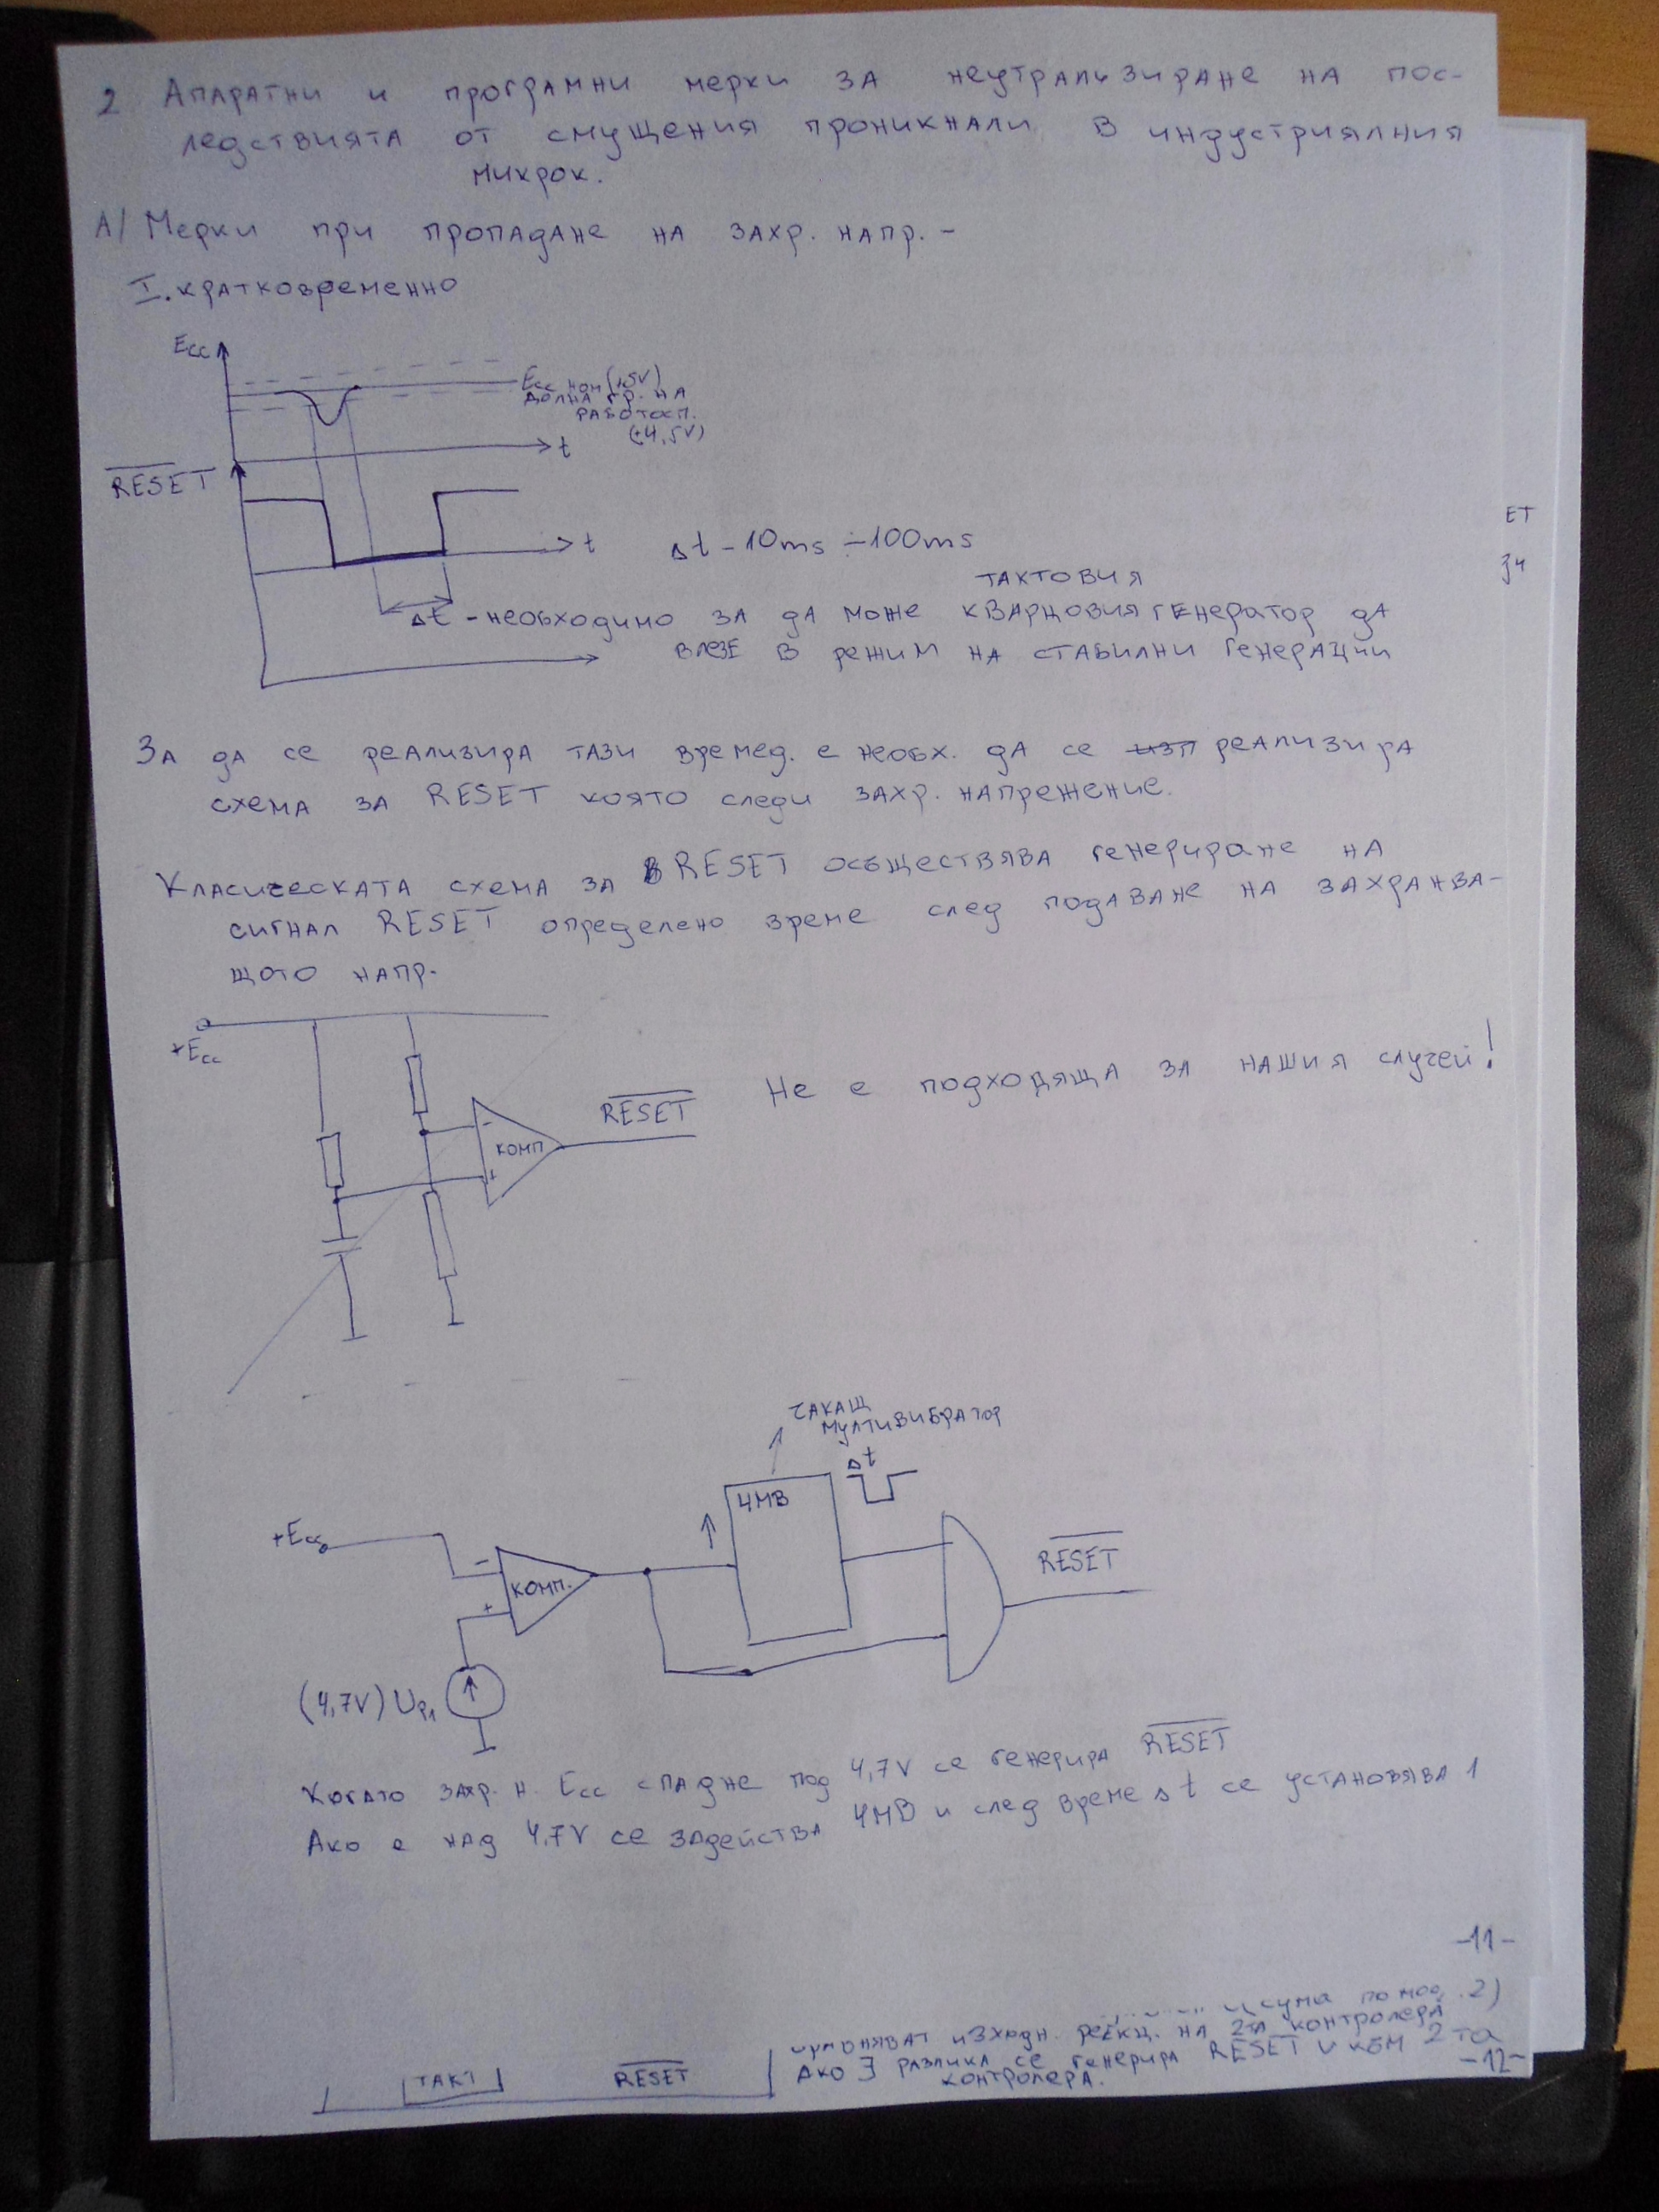 2 Апаратни и програмни мерки за неутрализиране на пос-
ледствията от смущения проникнали в индустриялния
микрок.
А/ Мерки при пропадане на захр. напр. -
I. кратковременно
Ecc
Ecc ном (+5V)
долна гр. на
работосп.
(+4,5V)
t
RESET
t
Δt - 10ms ÷ 100ms
тактовия
Δt - необходимо за да може кварцовия генератор да
влезе в режим на стабилни генерации
За да се реализира тази времед. е необх. да се изп реализира
схема за RESET която следи захр. напрежение.
Класическата схема за RESET осъществява генериране на
сигнал RESET определено време след подаване на захранва-
щото напр.
+Ecc
-
КОМП
+
RESET
Не е подходяща за нашия случей!
чакащ
мултивибратор
Δt
ЧМВ
+Ecc
-
КОМП.
+
RESET
(4,7V)
Когато захр. н. Ecc спадне под 4,7V се генерира RESET
Ако е над 4,7V се задейства ЧМВ и след време Δt се установява 1
-11-
ЕТ
сума по мод. 2)
изходн. на 2та контролера
Ако ∃ разлика се генерира RESET към 2та
контролера.
-12-
ТАКТ
RESET